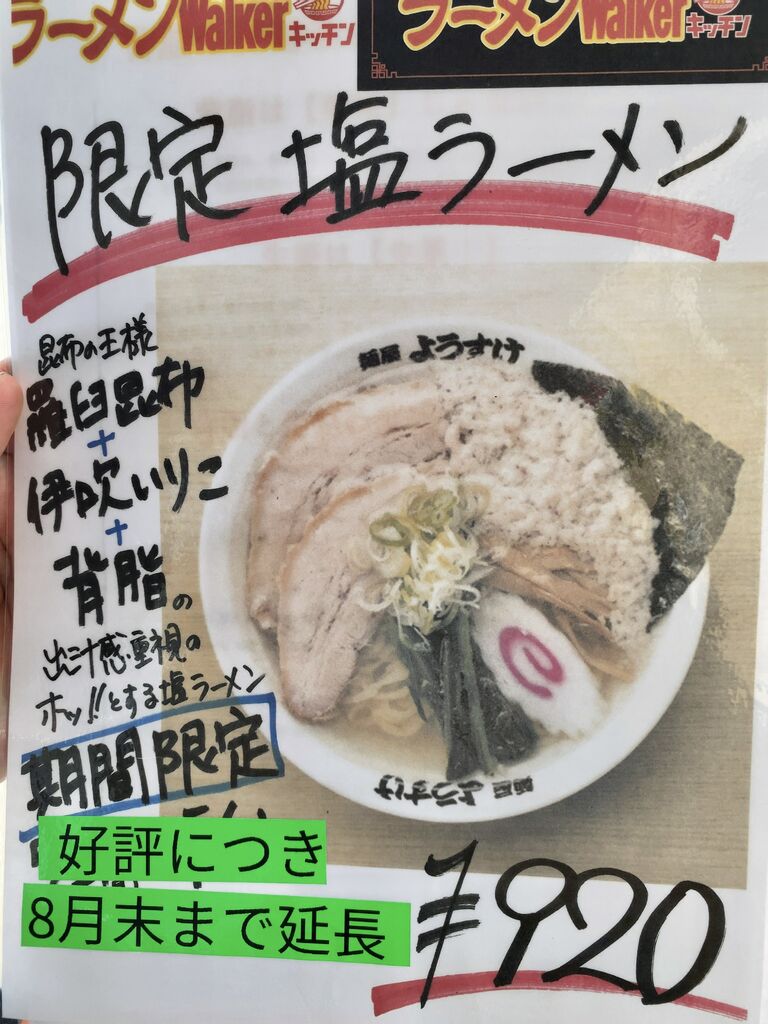 ラーメンWalkerキッチン
ラーメンWalkerキッチン
限定 塩ラーメン
昆布の王様
羅臼昆布
+
伊吹いりこ
+
背脂の
出汁感重視の
ホッ!!とする塩ラーメン
期間限定
麺屋 ようすけ
麺屋 ようすけ
好評につき
8月末まで延長
¥920